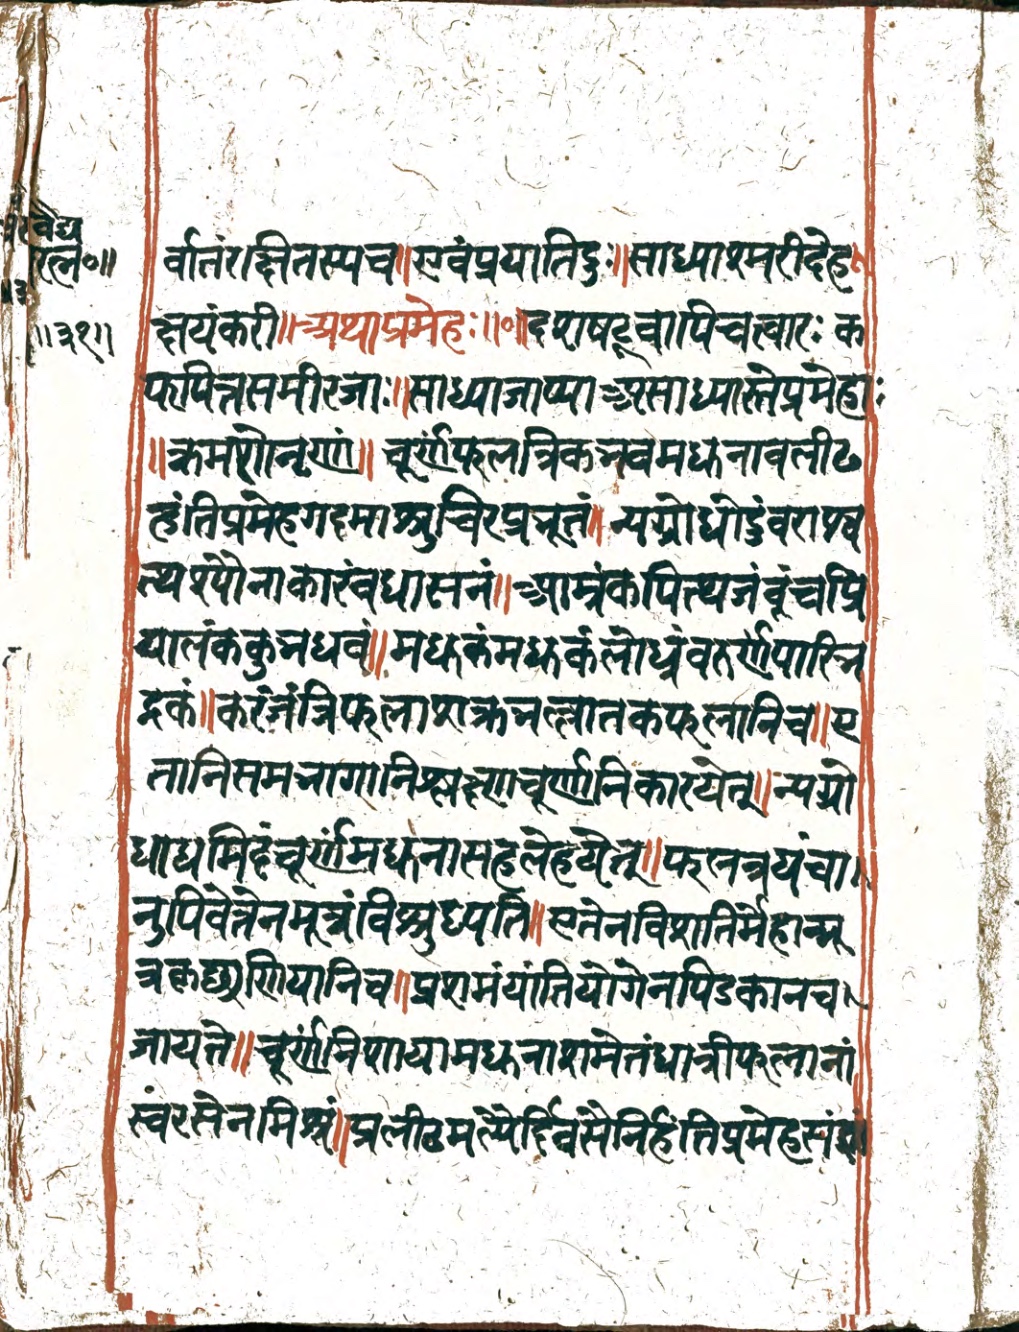 वैद्य
रत्न०॥
॥३१॥
र्वातंराक्षितस्यच॥एवंप्रयातिदुः॥साध्याश्मरीदेह
क्षयंकरी॥अथाप्रमेहः॥०॥दशषट्वापिचत्वारः क
फपित्तसमीरजाः॥साध्याजाप्याअसाध्यास्तेप्रमेहाः
॥क्रमशोनृणां॥ चूर्णंफलत्रिकभवमधुनावलीढ
हंतिप्रमेहगदमाशुचिरप्रभूतं॥ न्यग्रोधोडुंवराश्व
त्थश्यौनाकारंवधासनं॥आम्रंकपित्थजंवूंचप्रि
यालंककुभधवं॥मधुकंमधुकंलोध्रंवरुणंपारिभ
द्रकं॥करंजंत्रिफलाशक्रभल्लातकफलानिच॥ए
तानिसमभागानिश्लक्ष्णचूर्णानिकारयेत्॥न्यग्रो
धाद्यमिदंचूर्णंमधुनासहलेहयेत्॥फलत्रयंचा
नुपिवेत्तेनमूत्रंविशुध्यति॥एतेनविंशतिर्मेहान्मू
त्रकृछ्राणियानिच॥प्रशमंयांतियोगेनपिडकानच
जायते॥चूर्णंनिशायामधुनाशमेतंधात्रीफलानां
स्वंरसेनमिश्रं॥प्रलीढमल्पैर्दिवसैर्निहंतिप्रमेहसं